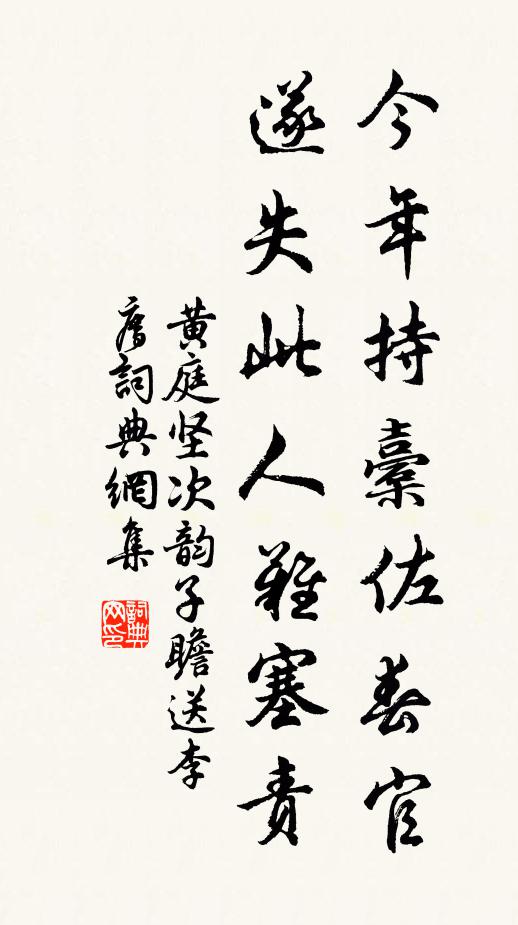 今年持橐佐春官
遂失此人難塞責
黄庭坚次韵子瞻送李
廌詞典網集
詞典网印